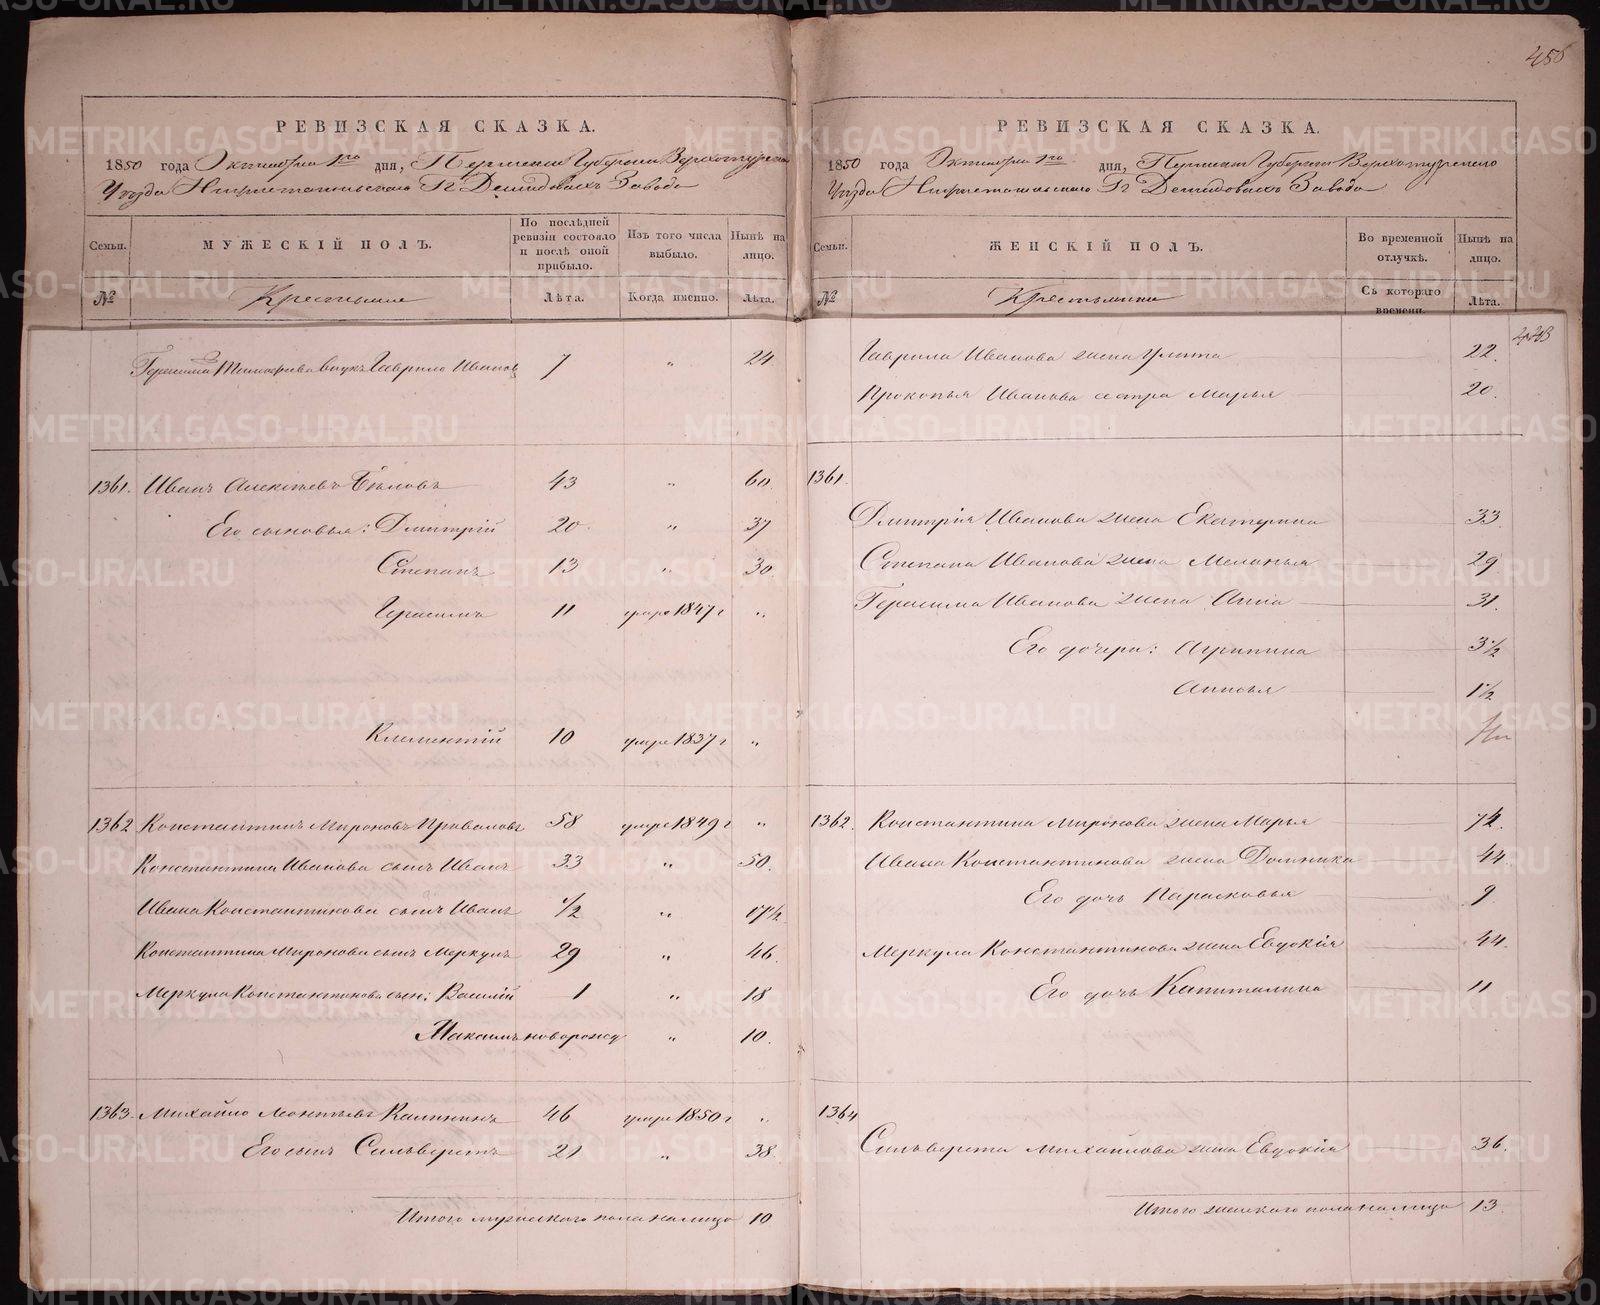 456
РЕВИЗСКАЯ СКАЗКА.
1850 года Октября 1го дня, Пермской Губернии Верхотурскаго
Уѣзда Нижнетагильскаго Гг Демидовыхъ Завода
Семьи.
МУЖЕСКІЙ ПОЛЪ.
По послѣдней ревизіи состояло и послѣ оной прибыло.
Изъ того числа выбыло.
Нынѣ на лицо.
№
Крестьяне
Лѣта.
Когда именно.
Лѣта.
внукъ Гаврило Ивановъ 7 " 24.
1361. Иванъ Алексѣевъ Бѣловъ 43 " 60
Его сыновья: Дмитрій 20 " 37
Степанъ 13 " 30
Герасимъ 11 умре 1847 г "
Климентій 10 умре 1837 г "
1362 Константинъ Мироновъ Проваловъ 58 умре 1849 г "
Константина Иванова сынъ Иванъ 33 " 50.
Ивана Константинова сынъ Иванъ 1/2 " 17 1/2
Константина Миронова сынъ Меркулъ 29 " 46.
Меркула Константинова сын: Василій 1 " 18
Максимъ новорожд " 10.
1363. Михайло Леонтьевъ Калининъ 46 умре 1850 г "
Его сынъ Сильверстъ 21 " 38.
Итого мужескаго пола на лицо 10
РЕВИЗСКАЯ СКАЗКА.
1850 года Октября 1го дня, Пермской Губерніи Верхотурскаго
Уѣзда Нижнетагильскаго Гг Демидовыхъ Завода
Семьи.
ЖЕНСКІЙ ПОЛЪ.
Во временной отлучкѣ.
Нынѣ на лицо.
№
Крестьянки
Съ котораго времени.
Лѣта.
Гаврила Иванова жена Улита 22.
Прокопья Иванова сестра Марья 20.
1361.
Дмитрія Иванова жена Екатерина 33.
Степана Иванова жена Меланья 29
Герасима Иванова жена Анна 31.
Его дочери: Агрипина 3 1/2
Анисья 1 1/2
1362. Константина Миронова жена Марья 74.
Ивана Константинова жена Домника 44
Его дочь Парасковья 9
Меркула Константинова жена Евдокія 44.
Его дочь Капиталина 11
1364
Сильверста Михайлова жена Евдокія 36.
Итого женскаго пола на лицо 13.
METRIKI.GASO-URAL.RU